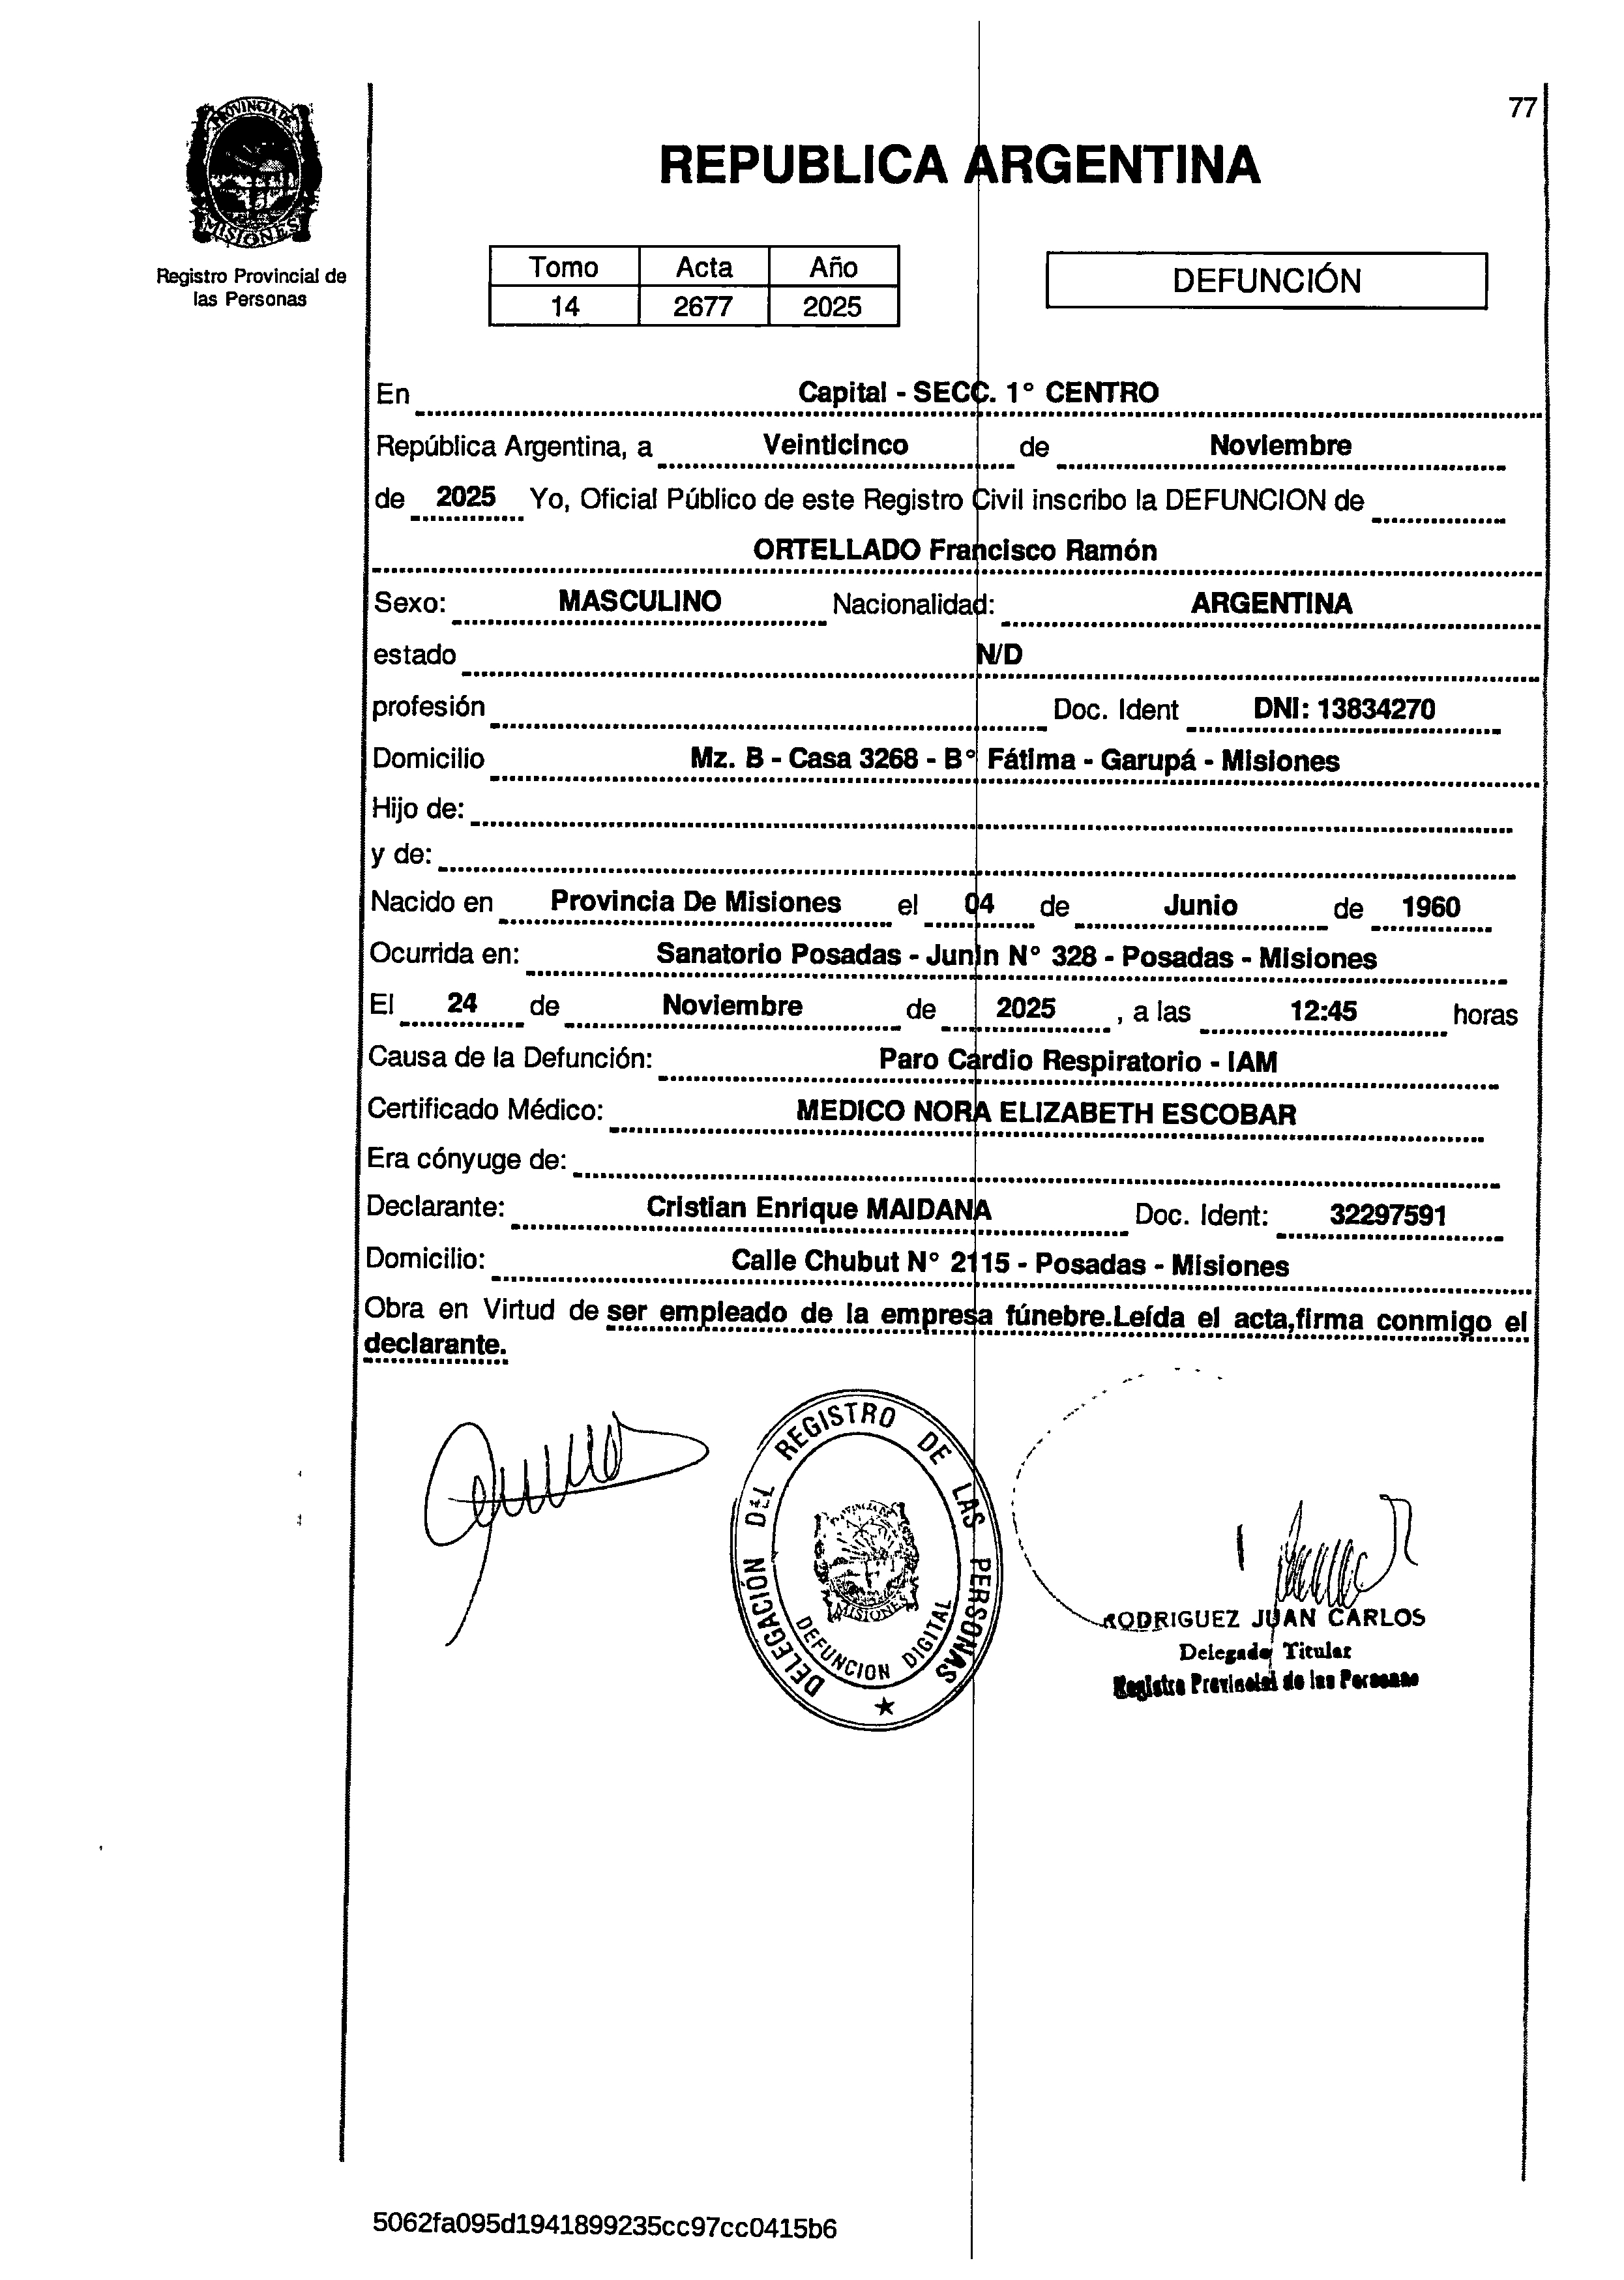 77
PROVINCIA DE
MISIONES
Registro Provincial de
las Personas
REPUBLICA ARGENTINA
Tomo Acta Año
14 2677 2025
DEFUNCIÓN
En Capital - SECC. 1° CENTRO
República Argentina, a Veinticinco de Noviembre
de 2025 Yo, Oficial Público de este Registro Civil inscribo la DEFUNCION de
ORTELLADO Francisco Ramón
Sexo: MASCULINO Nacionalidad: ARGENTINA
estado N/D
profesión Doc. Ident DNI: 13834270
Domicilio Mz. B - Casa 3268 - B° Fátima - Garupá - Misiones
Hijo de:
y de:
Nacido en Provincia De Misiones el 04 de Junio de 1960
Ocurrida en: Sanatorio Posadas - Junín N° 328 - Posadas - Misiones
El 24 de Noviembre de 2025 , a las 12:45 horas
Causa de la Defunción: Paro Cardio Respiratorio - IAM
Certificado Médico: MEDICO NORA ELIZABETH ESCOBAR
Era cónyuge de:
Declarante: Cristian Enrique MAIDANA Doc. Ident: 32297591
Domicilio: Calle Chubut N° 2115 - Posadas - Misiones
Obra en Virtud de ser empleado de la empresa fúnebre.Leída el acta,firma conmigo el
declarante.
DELEGACIÓN DEL REGISTRO DE LAS PERSONAS
PROVINCIA DE
MISIONES
DEFUNCION DIGITAL
RODRIGUEZ JUAN CARLOS
Delegado Titular
Registro Provincial de las Personas
5062fa095d1941899235cc97cc0415b6